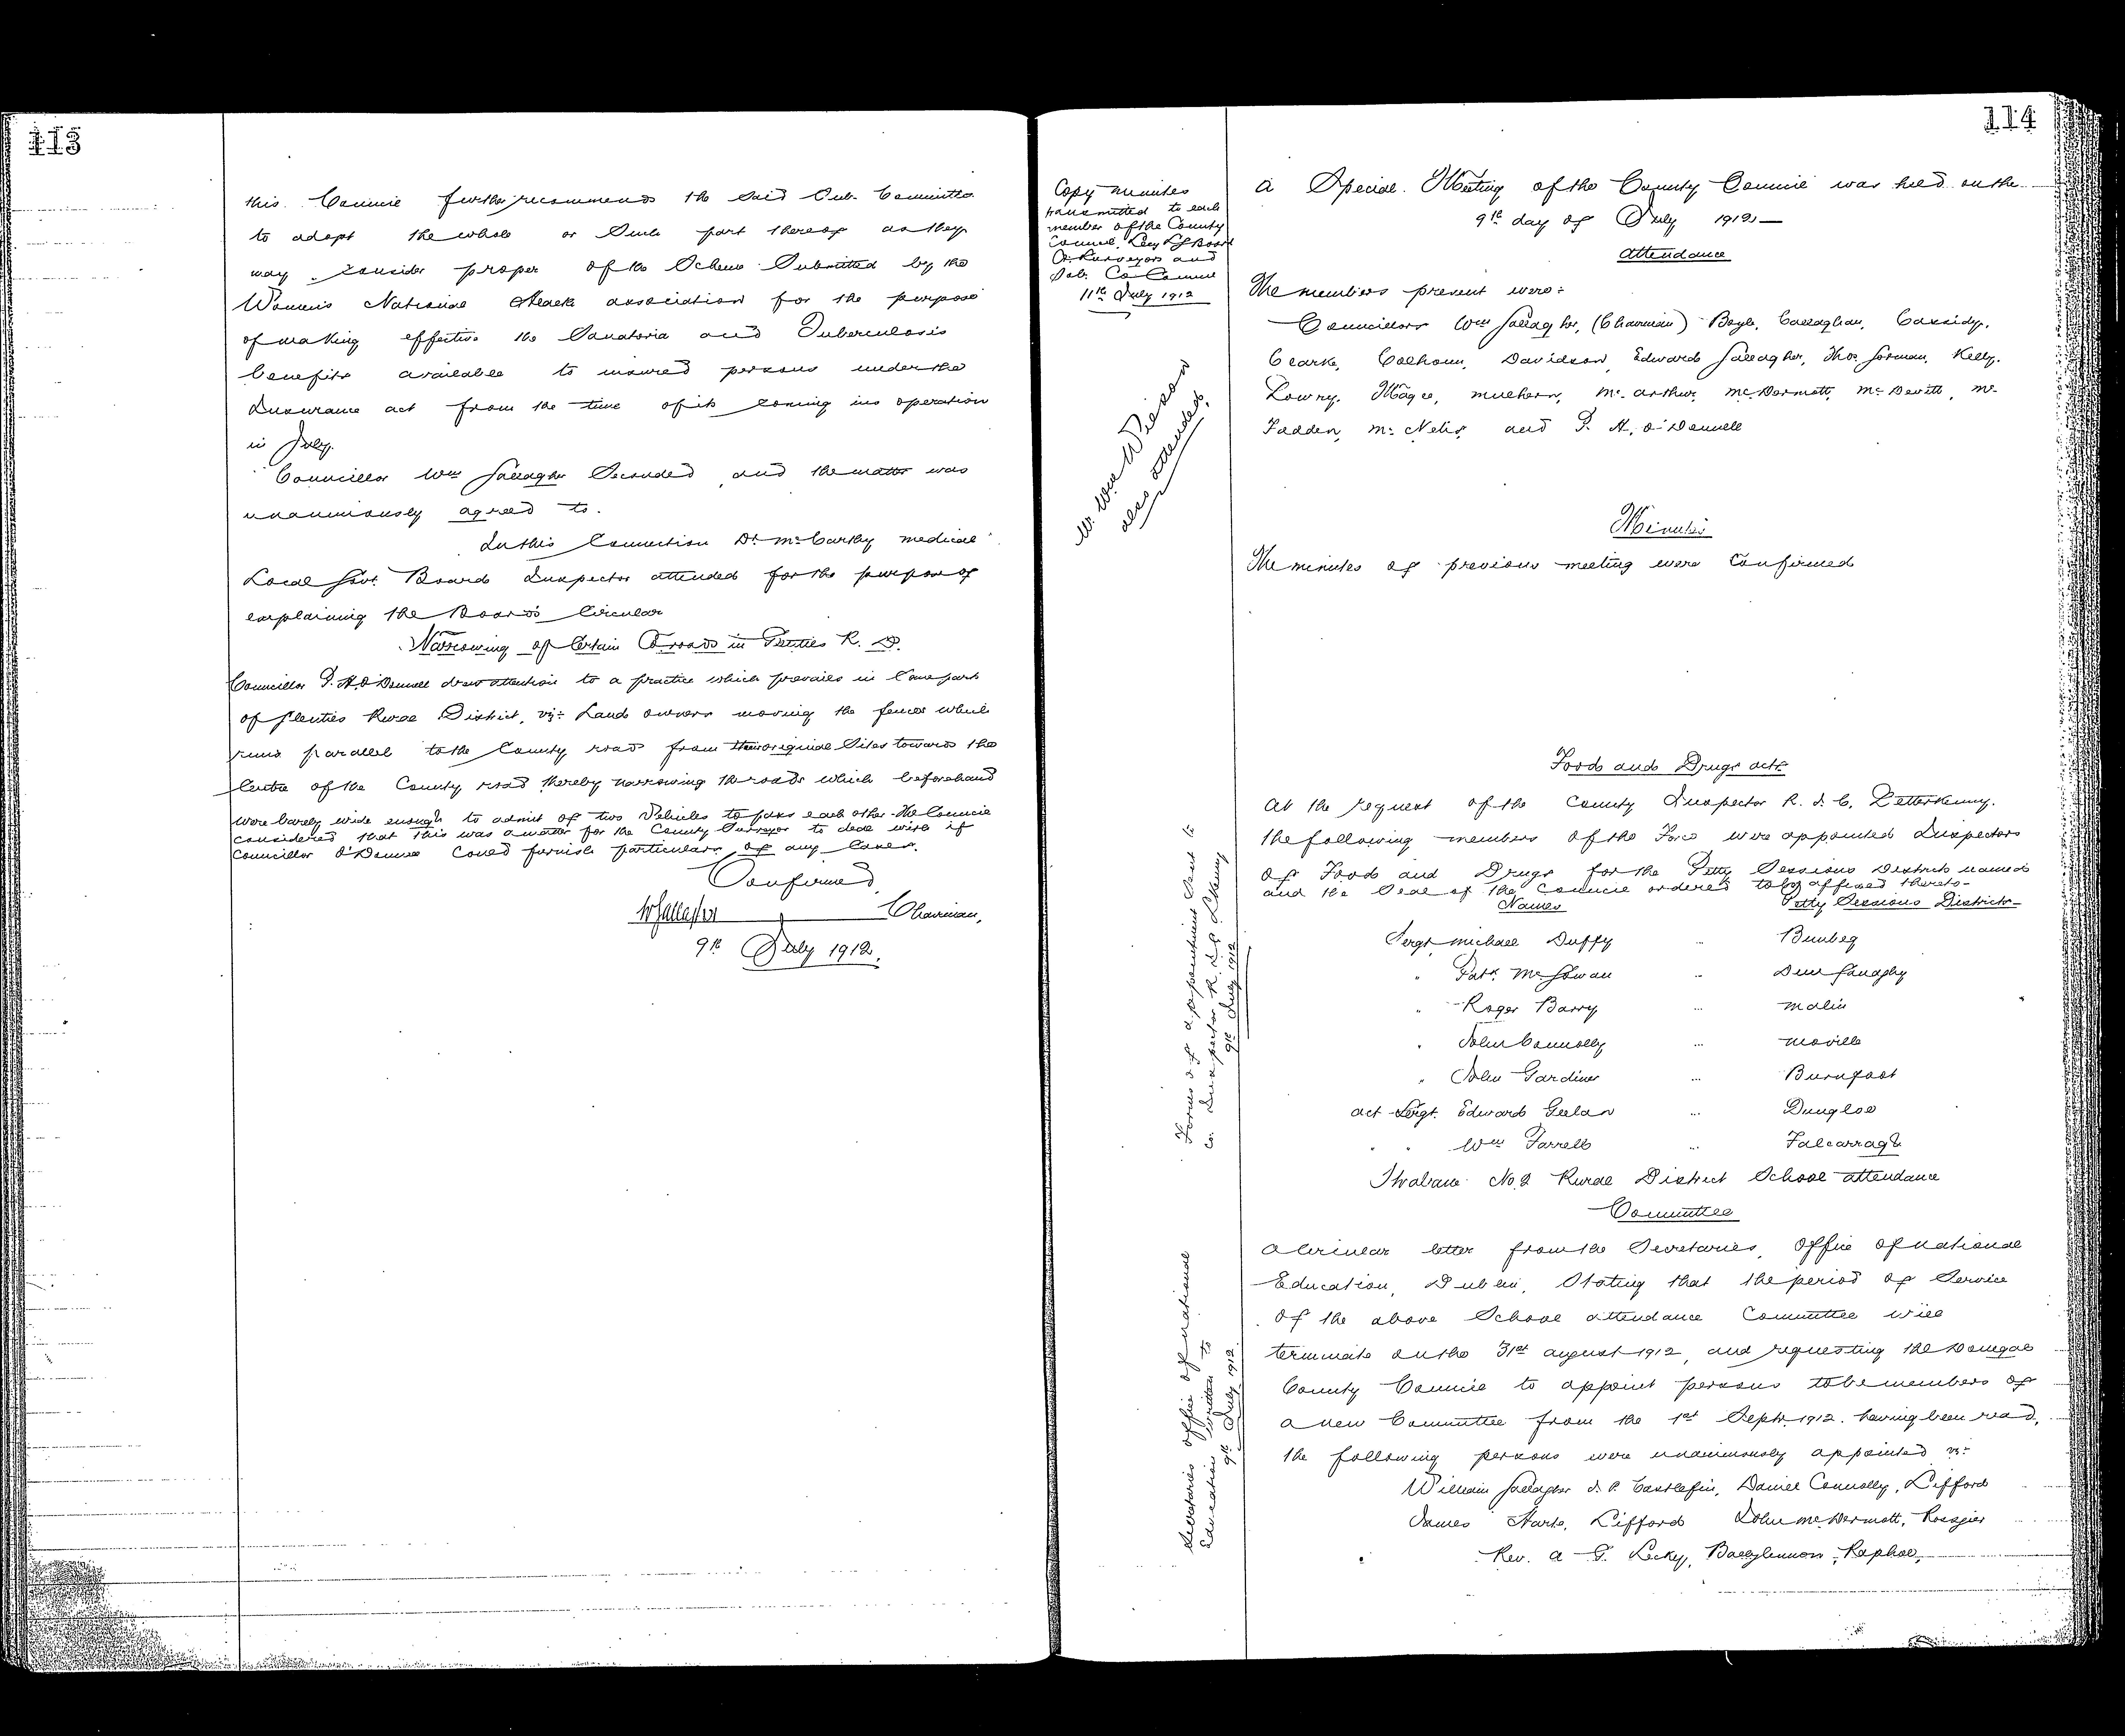 113
this Council further recommends the said Sub. Committee
to adopt the whole or such part thereof as they
may consider proper of the Scheme Submitted by the
Women's National Health association for the purpose
of making effective the Sanatoria and Tuberculosis
benefits available to insured persons under the
Insurance act from the time of its coming into operation
in July.
Councillor Wm Gallagher Seconded, and the matter was
unanimously agreed to.
In this Connection Dr. McCarthy medical
Local Govt. Board Inspector attended for the purpose of
explaining the Board's Circular
Narrowing of Certain Co roads in Glenties R. D.
Councillor P. A. O'Donnell drew attention to a practice which prevails in some parts
of Glenties Rural District, viz:- Land owners moving the fences which
runs parallel to the County road from their original Sites towards the
Centre of the County road thereby narrowing the roads which beforehand
were barely wide enough to admit of two Vehicles to pass each other. The Council
considered that this was a matter for the County Surveyor to deal with if
Councillor O'Donnell could furnish particulars of any Cases.
Confirmed
W Gallagher Chairman,
9th July 1912.
114
Copy minutes
transmitted to each
member of the County
Council, Secy LG Board
Co. Surveyors and
Sub. Co Council
11th July 1912
Mr. Wm Wilson
also attended.
A Special Meeting of the County Council was held on the
9th day of July 1912.—
Attendance
The members present were:
Councillors Wm Gallagher, (Chairman) Boyle, Callaghan, Cassidy,
Clarke, Colhoun, Davidson, Edward Gallagher, Thos. Gorman, Kelly,
Lowry, Magee, Mulhern, Mc. Arthur, McDermott, McDevitt, Mc.
Fadden, McNelis, and P. A. O'Donnell
Minutes
The minutes of previous meeting were Confirmed
Food and Drugs acts
At the request of the County Inspector R. I. C. Letterkenny,
the following members of the Force were appointed Inspectors
of Food and Drugs for the Petty Sessions Districts named
and the Seal of the Council ordered to be affixed thereto—
Names Petty Sessions Districts—
Forms of appointment Sent to
Co. Inspector R. I. C. L'Kenny
9th July 1912
Sergt Michael Duffy .. Bunbeg
" Patk. McGowan .. Dunfanaghy
" Roger Barry ... Malin
" John Connolly ... Moville
" John Gardiner ... Burnfoot
Act Sergt. Edward Geelan ... Dungloe
" " Wm Farrell ... Falcarragh
Strabane No. 2 Rural District School attendance
Committee
Secretaries office of National
Education written to
9th July 1912
A Circular letter from the Secretaries, Office of National
Education, Dublin, Stating that the period of Service
of the above School attendance Committee will
terminate on the 31st August 1912, and requesting the Donegal
County Council to appoint persons to be members of
a new Committee from the 1st Sept. 1912. having been read,
the following persons were unanimously appointed viz:-
William Gallagher J. P. Castlefin, Daniel Connolly, Lifford
James Harte, Lifford John McDermott, Rossgier
Rev. A. G. Lecky, Ballylennon, Raphoe,